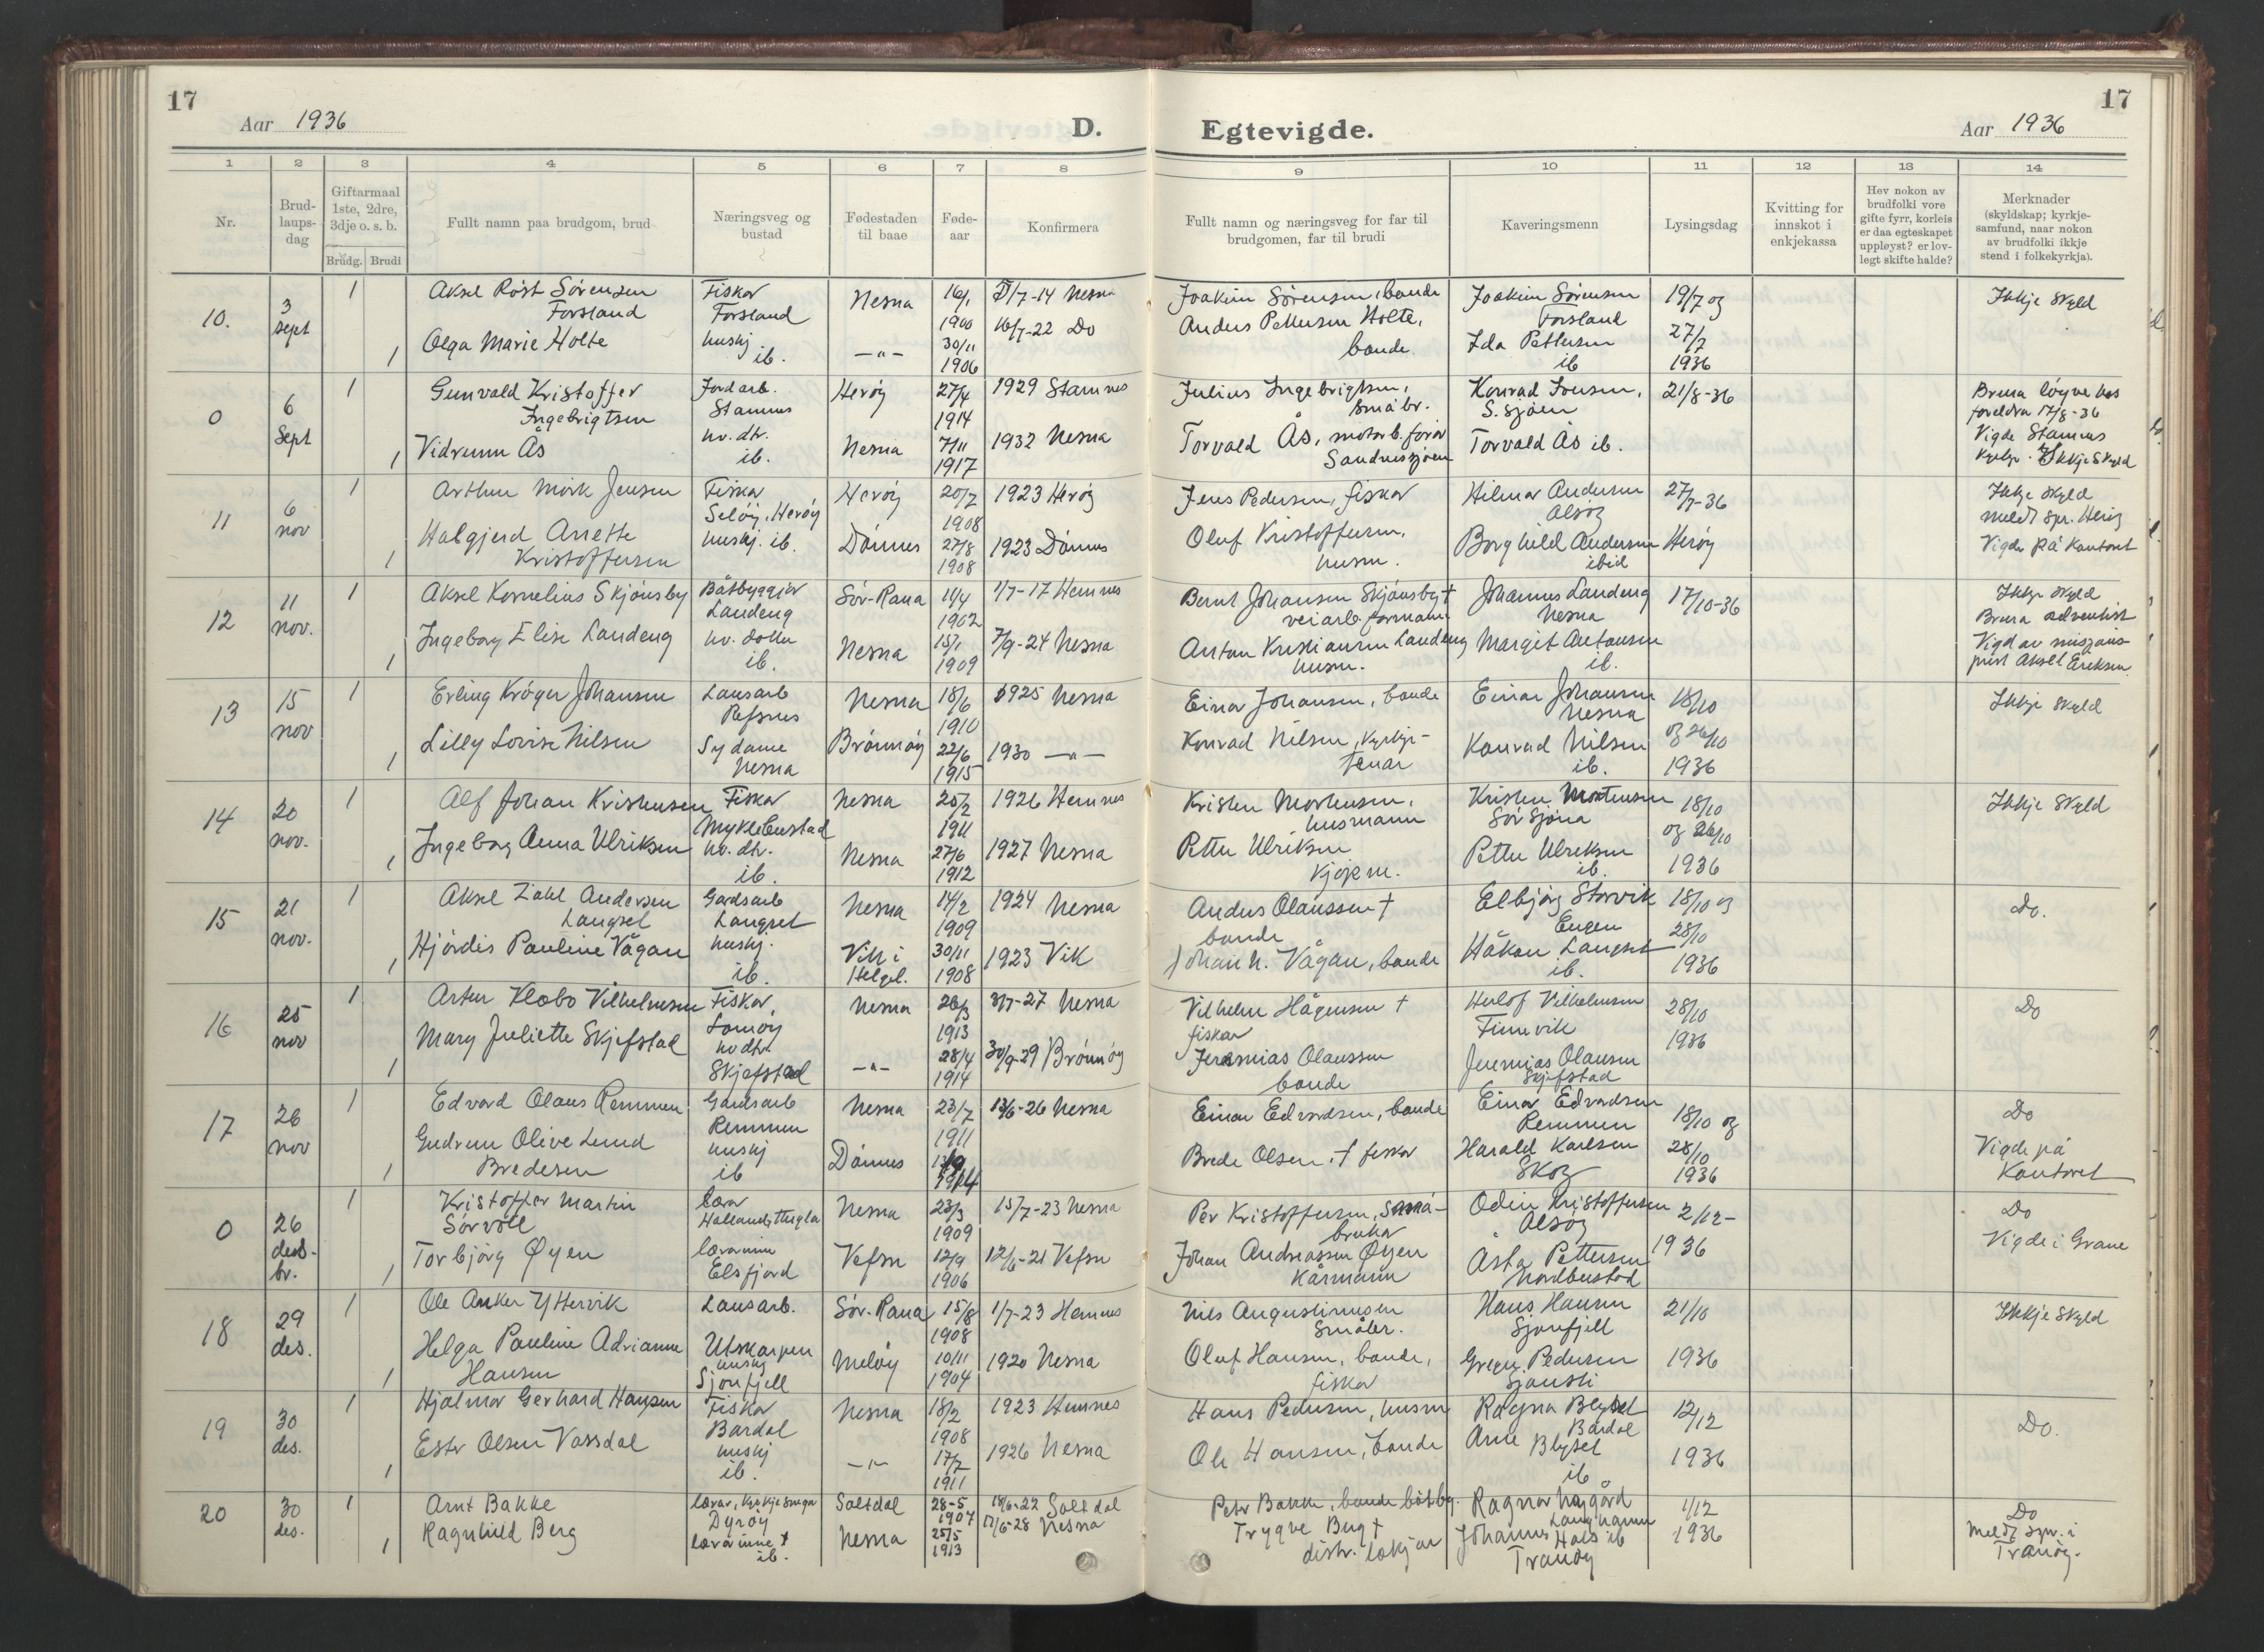 17
Aar 1936
D.
1 2 3 4 5 6 7 8
Nr.
Brud-
laups-
dag
Giftarmaal
1ste, 2dre,
3dje o. s. b.
Brudg. Brudi
Fullt namn paa brudgom, brud
Næringsveg og
bustad
Fødestaden
til baae
Føde-
aar
Konfirmera
10.
3
sept
1
Aksel Röst Sörensen
Forsland
Fiskar
Forsland
Nesna
16/1
1900
5/7-14 Nesna
1
Olga Marie Holte
hushj
ib.
—"—
30/11
1906
16/7-22 Do
0
6
Sept
1
Gunvald Kristoffer
Ingebrigtsen
Jordarb.
Stamnes
Heröy
27/4
1914
1929 Stamnes
1
Vidrunn Ås
hv. dtr.
ib.
Nesna
7/11
1917
1932 Nesna
11
6
nov
1
Arthur Mörk Jensen
Fiskar
Selöy, Heröy
Heröy
20/2
1908
1923 Heröy
1
Halgjerd Anette
Kristoffersen
hushj. ib.
Dönnes
27/8
1908
1923 Dönnes
12
11
nov.
1
Aksel Kornelius Skjönsby
Båtbyggjar
Landeng
Sör-Rana
11/4
1902
1/7-17 Hemnes
1
Ingeborg Elise Landeng
hv. dotter
ib.
Nesna
15/1
1909
7/9-24 Nesna
13
15
nov
1
Erling Kröger Johansen
Lausarb
Refsnes
Nesna
18/6
1910
1925 Nesna
1
Lilly Lovise Nilsen
Sydame
Nesna
Brönnöy
22/6
1915
1930 —"—
14
20
nov.
1
Alf Johan Kristensen
Fiskar
Myklebustad
Nesna
25/2
1911
1926 Hemnes
1
Ingeborg Anna Ulriksen
hv. dtr.
ib.
Nesna
27/6
1912
1927 Nesna
15
21
nov.
1
Aksel Zahl Andersen
Langset
Gardsarb
Langset
Nesna
14/2
1909
1924 Nesna
1
Hjördis Pauline Vågan
hushj.
ib.
Vik i
Helgel.
30/11
1908
1923 Vik
16
25
nov
1
Artur Klæbo Vilhelmsen
Fiskar,
Nesna
26/3
1913
3/7-27 Nesna
1
Mary Juliette Skjefstad
hv dtr.
Skjefstad
—"—
28/4
1914
30/9-29 Brönnöy
17
26
nov
1
Edvard Olaus Remmen
Gardsarb
Remmen
Nesna
23/7
1911
13/6-26 Nesna
1
Gudrun Olive Lund
Bredesen
hushj
ib
Dönnes
1914
0
26
desb-
br.
1
Kristoffer Martin
Sörvoll
lærar
Nesna
23/3
1909
15/7-23 Nesna
1
Torbjörg Øyen
lærarinne
Elsfjord
Vefsn
12/9
1906
12/6-21 Vefsn
18
29
des.
1
Ole Anker Yttervik
Lausarb.
Utskarpen
Sör-Rana
15/8
1908
1/7-23 Hemnes
1
Helga Pauline Adrianne
Hansen
huskj
Sjonfjell
Melöy
10/11
1904
1920 Nesna
19
30
des.
1
Hjalmar Gerhard Hansen
Fiskar
Bardal
Nesna
18/2
1908
1923 Hemnes
1
Ester Olsen Vassdal
huskj
ib.
—"—
17/7
1911
1926 Nesna
20
30
des.
1
Arnt Bakke
lærar, kyrkjesongar
Dyröy
Saltdal
28-5
1907
18/6-22 Saltdal
1
Ragnhild Berg
lærarinne
ib.
Nesna
25/5
1913
17/6-28 Nesna
Egtevigde.
Aar 1936
17
9 10 11 12 13 14
Fullt namn og næringsveg for far til
brudgomen, far til brudi
Kaveringsmenn
Lysingsdag
Kvitting for
innskot i
enkjekassa
Hev nokon av
brudfolki vore
gifte fyrr, korleis
er daa egteskapet
uppløyst? er lov-
legt skifte halde?
Merknader
(skyldskap; kyrkje-
samfund, naar nokon
av brudfolki ikkje
stend i folkekyrkja).
Joakim Sörensen, bonde
Joakim Sörensen
Forsland
19/7 og
27/7
1936
Ikkje skyld
Anders Pettersen Holte,
bonde.
Ida Pettersen
ib
Julius Ingebrigtsen,
småbr.
Konrad Jensen,
S. sjöen
21/8-36
Bruna löyve hos
foreldra 17/8-36
Vigde Stamnes
kyrkje. Ikkje skyld
Torvald Ås, motorb. förar
Sandnessjöen
Torvald Ås ib.
Jens Pedersen, fiskar
Hilmar Andersen
Alsöy
27/7-36
Heröy
Ikkje skyld
meldt spr. Heröy
Vigde på kontoret
Oluf Kristoffersen,
husm.
Borghild Andersen
ibid
Bernt Johansen Skjönsby †
veiarb. formann
Johannes Landeng
Nesna
17/10-36
Ikkje skyld
Bruna adventist
Vigd av misjons-
prest Aksel Eriksen
Anton Kristiansen Landeng
husm.
Margit Antonsen
ib.
Einar Johansen, bonde
Einar Johansen
Nesna
18/10
og 26/10
1936
Ikkje skyld
Konrad Nilsen, kyrkje-
tenar
Konrad Nilsen
ib.
Kristen Mortensen,
husmann
Kristen Mortensen
Sör Sjona
18/10
og 26/10
1936
Ikkje skyld
Petter Ulriksen
Kjöpm.
Petter Ulriksen
ib.
Anders Olaussen †
bonde
Elbjörg Storvik
Engen
18/10 og
28/10
1936
Do.
Johan N. Vågan, bonde
Håkon Langset
ib.
Vilhelm Hågensen †
fiskar
Herlof Vilhelmsen
Finnevik
28/10
1936
Do
Jeremias Olaussen
bonde
Jeremias Olausen
Skjefstad
Einar Edvardsen, bonde
Einar Edvardsen
Remmen
18/10 og
28/10
1936
Do
Vigde på
Kontoret
Brede Olsen, † fiskar
Harald Karlsen
Skog
Per Kristoffersen, små-
brukar
Odin Kristoffersen
Alsöy
2/12-
1936
Do
Vigde i Grane
Johan Andreassen Øyen
Kårmann
Asta Pettersen
Nordbustad
Nils Augustinussen
Småbr.
Hans Hansen
Sjonfjell
21/10
1936
Ikkje skyld
Oluf Hansen, bonde,
fiskar
Pedersen
Hans Pedersen, husm
Ragna Blyset
Bardal
12/12
1936
Do.
Ole Hansen, bonde
Arne Blyset
ib.
Peter Bakke, bonde båtby.
Ragnar
1/12
1936
Do
Meldt spr. i
Tranöy.
Trygve Berg †
distr. lækjar
Johannes Hals ib
Tranöy